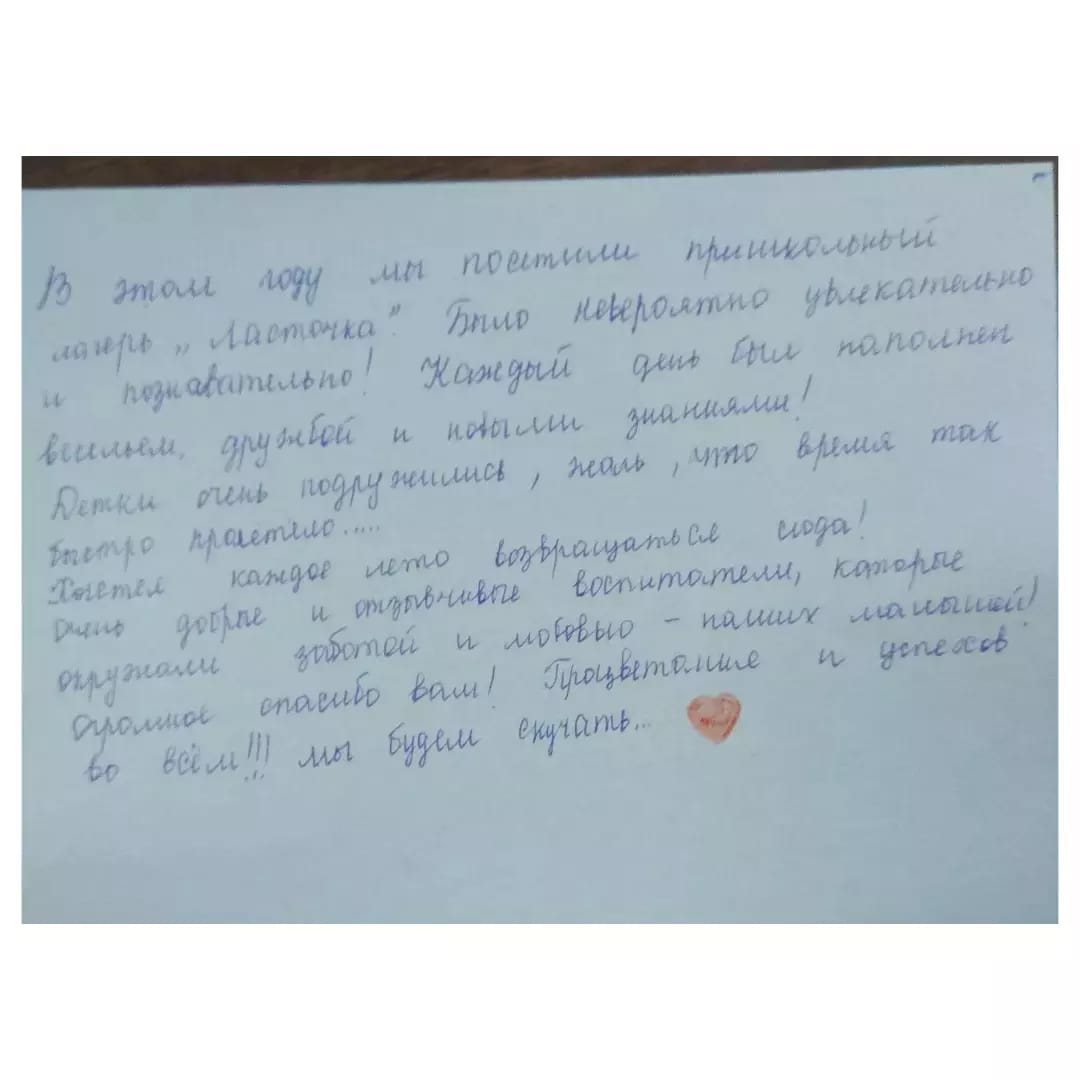 В этом году мы посетили пришкольный
лагерь „Ласточка". Было невероятно увлекательно
и познавательно! Каждый день был наполнен
весельем, дружбой и новыми знаниями!
Детки очень подружились, жаль, что время так
быстро пролетело.....
каждое лето возвращаться сюда!
Очень добрые и отзывчивые воспитатели, которые
окружали заботой и любовью - наших малышей!
Огромное спасибо вам! Процветания и успехов
во всём!!! мы будем скучать...